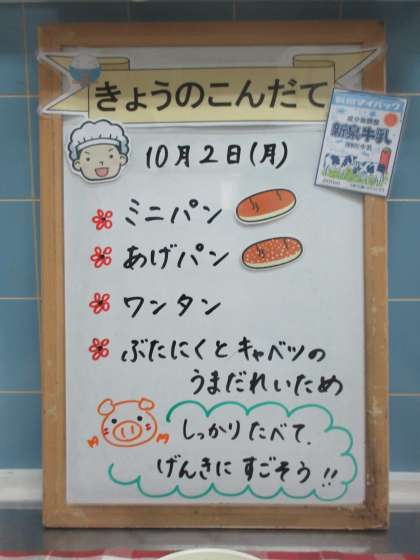 きょうのこんだて
10月2日(月)
ミニパン
あげパン
ワンタン
ぶたにくとキャベツの
うまだれいため
しっかりたべて、
げんきにすごそう!!
新泉牛乳